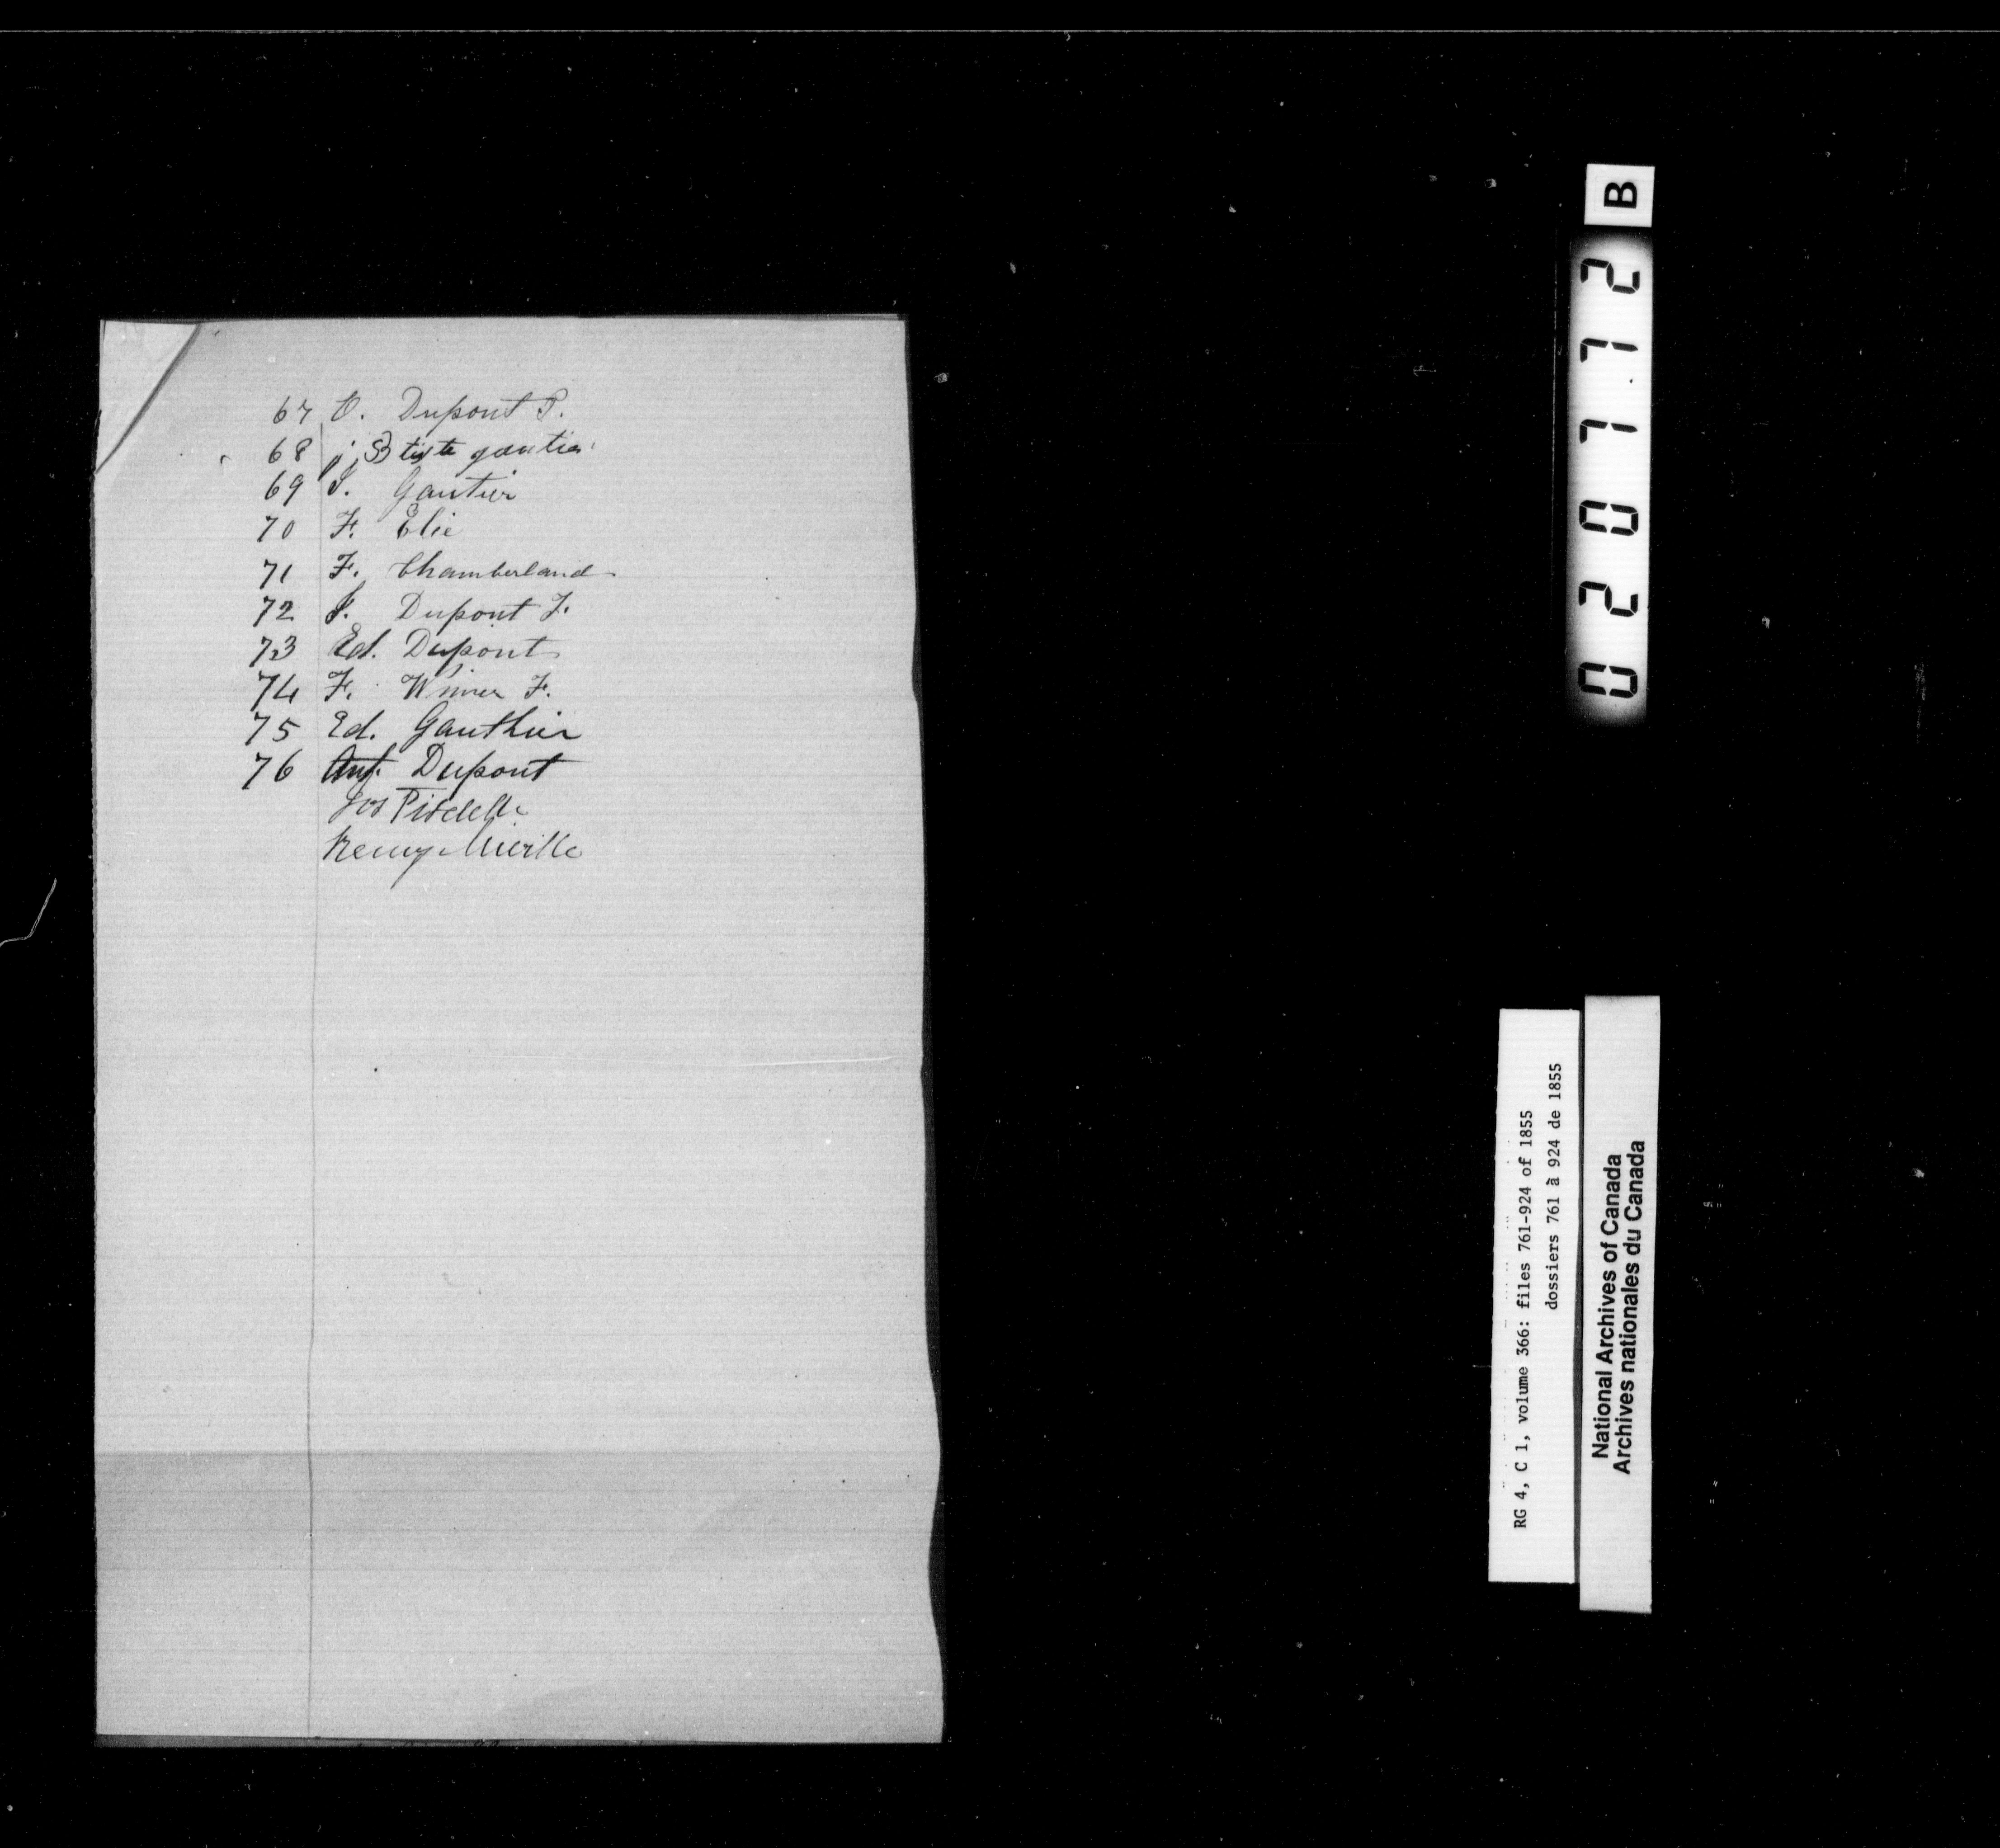 67 O. Dupont P.
68 j. Btiste gautier
69 J. Gautier
70 F. Elie
71 F. Chamberland
72 J. Dupont F.
73 Ed. Dupont
74 F. Winer F.
75 Ed. Gauthier
76 Ant. Dupont
Jos
Remy Miville
B
020772
RG 4, C 1, volume 366: files 761-924 of 1855
dossiers 761 à 924 de 1855
National Archives of Canada
Archives nationales du Canada